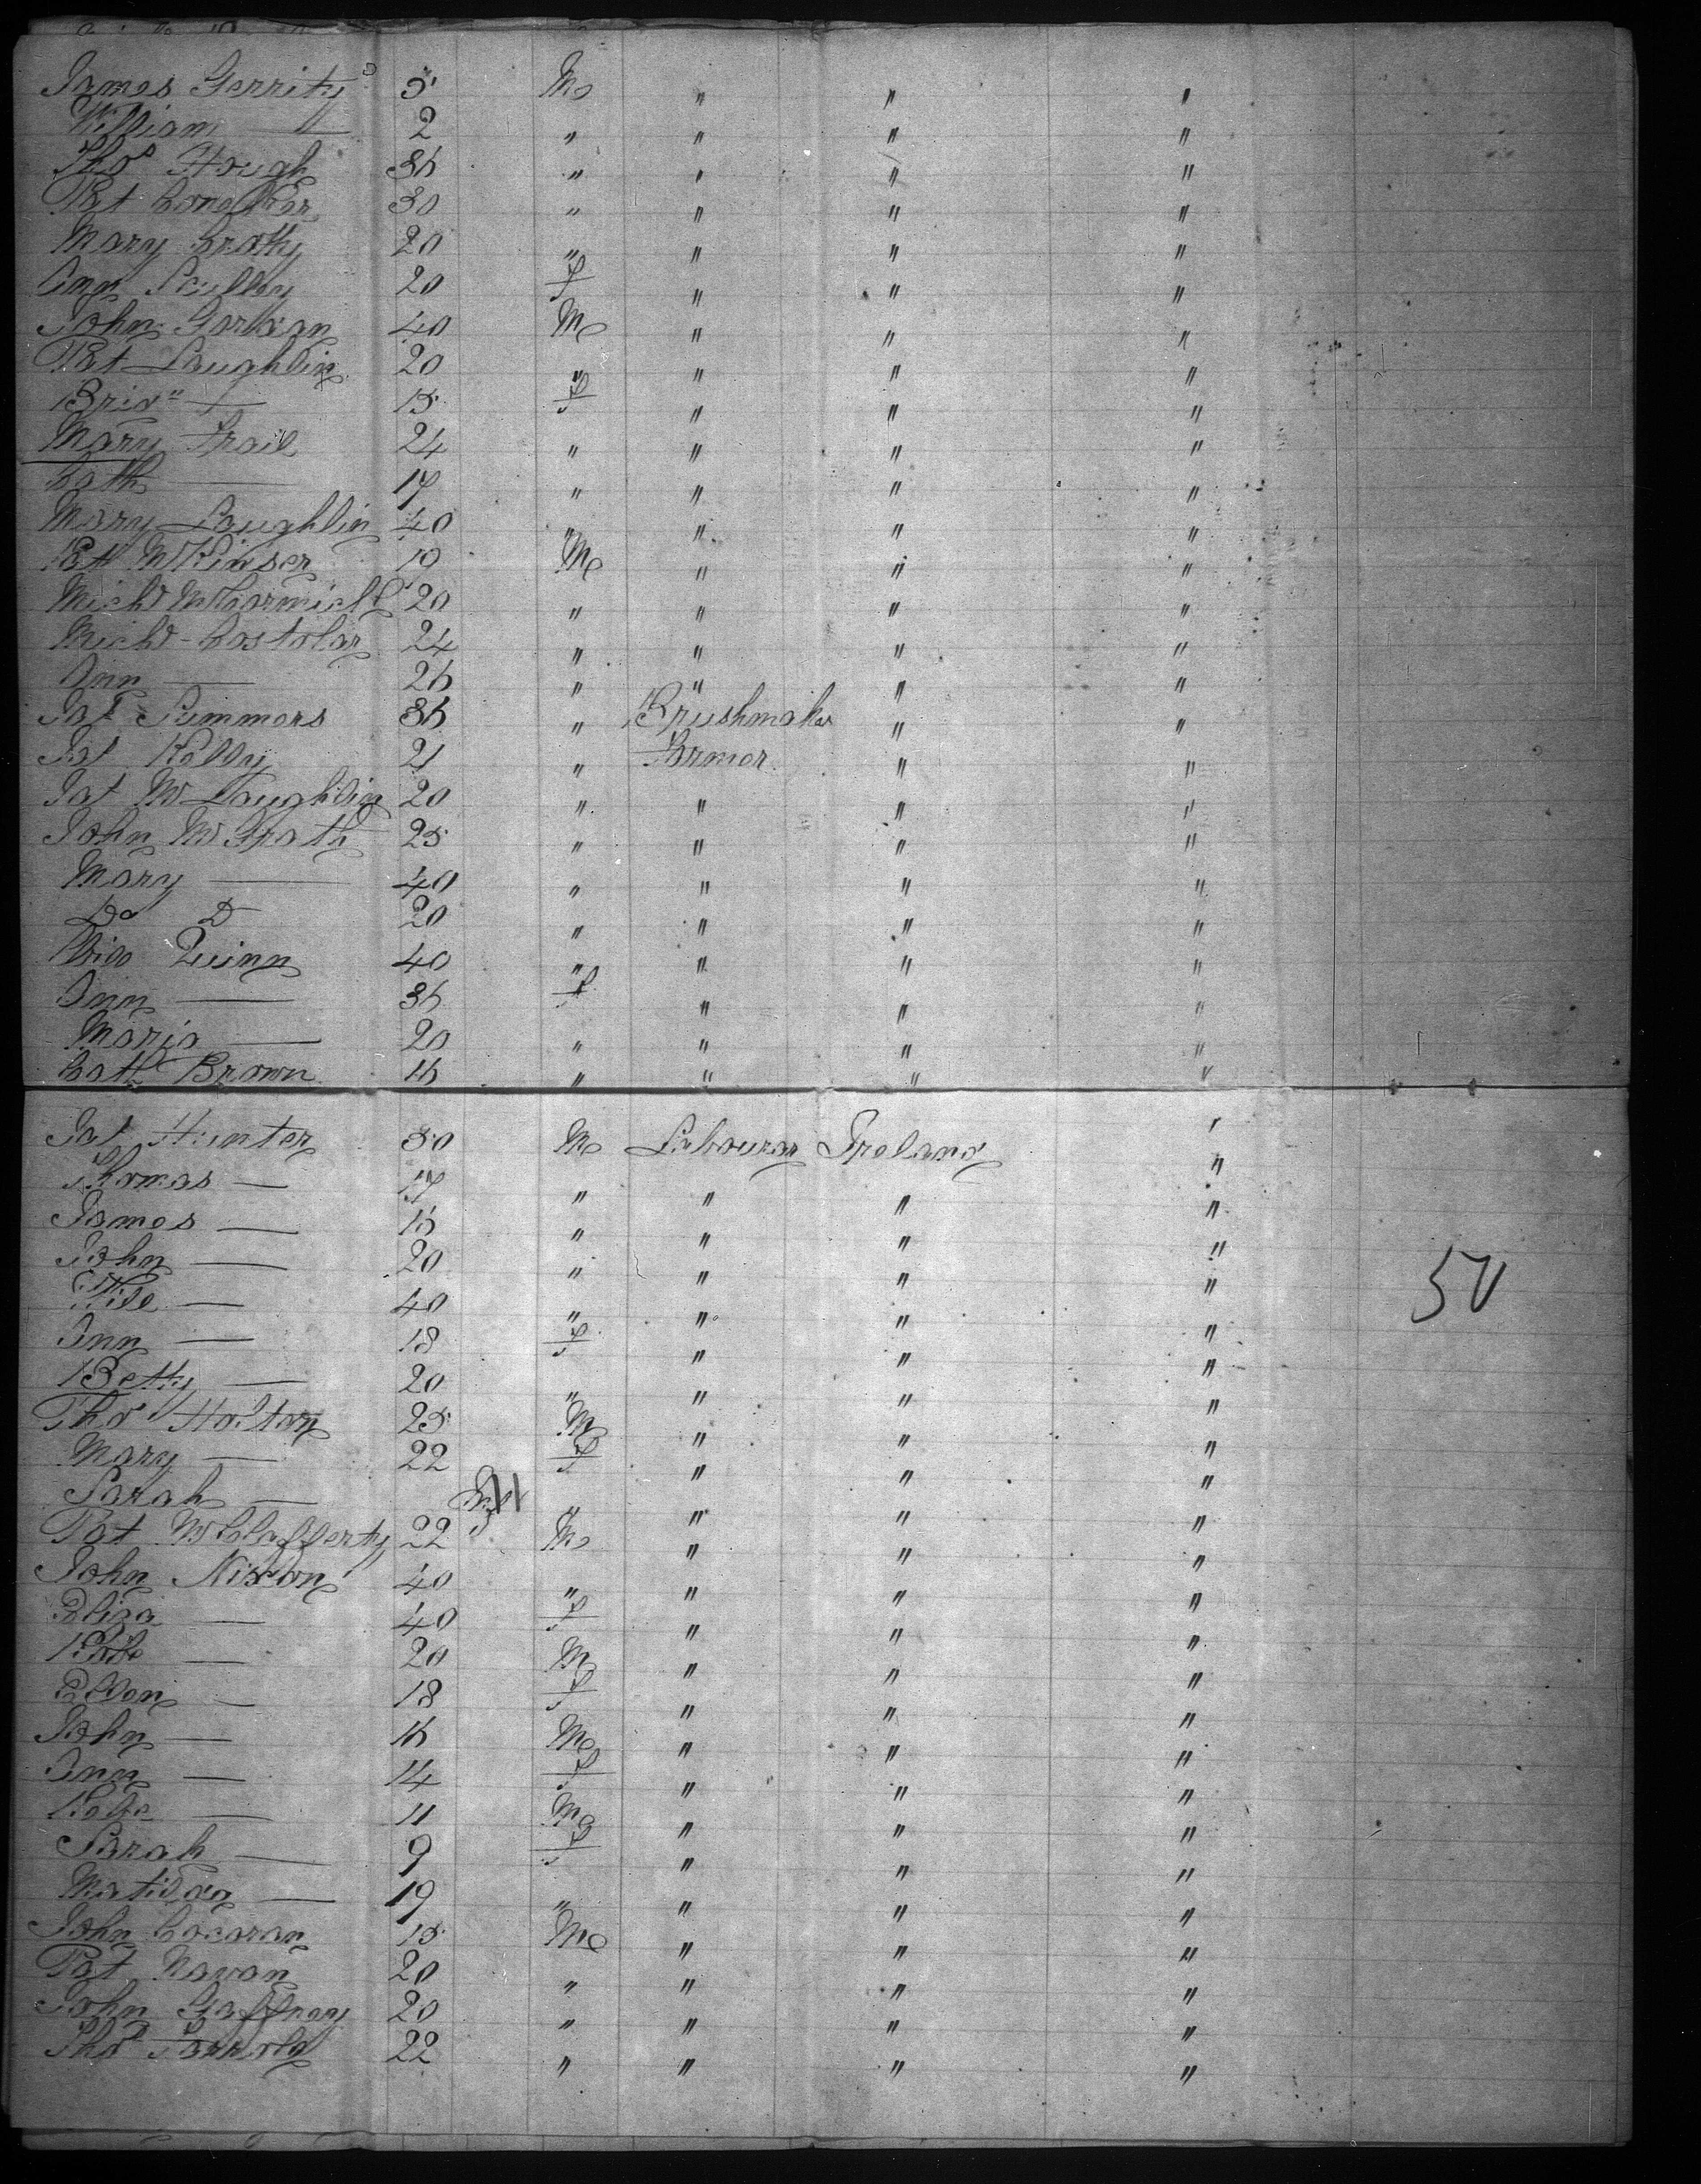 James Gerrity 5 M " " "
William — 2 " " " "
Thos Hough 36 " " " "
Pat 30 " " " "
Mary Crotty 20 " " " "
Ann Scully 20 f " " "
John Gorman 40 M " " "
Pat Laughlin 20 " " " "
Brid" — 15 f " " "
Mary Frail 24 " " " "
Cath — 17 " " " "
Mary Laughlin 40 " " " "
10 M " " "
Michl McCormick 20 " " " "
Michl Costolar 24 " " " "
Ann — 26 " " " "
Pat Summers 36 " Brushmaker " "
Pat Kelly 21 " Farmer " "
Pat McLaughlin 20 " " " "
John McGrath 25 " " " "
Mary — 40 " " " "
Do D 20 " " " "
Quinn 40 " " " "
Ann — 36 f " " "
Maria — 20 " " " "
Cath Brown 16 " " " "
Pat Hunter 50 M Labourer Ireland "
Thomas — 17 " " " "
James — 16 " " " "
John — 20 " " " "
— 40 " " " "
Ann — 18 f " " "
Betty — 20 " " " "
Thos Holton 25 M " " "
Mary — 22 f " " "
Sarah — Inf " " " "
Pat McClafferty 22 M " " "
John Nixon 40 " " " "
Eliza — 40 f " " "
— 20 M " " "
Ellen — 18 f " " "
John — 16 M " " "
Ann — 14 f " " "
— 11 M " " "
Sarah — 9 f " " "
Matilda — 19 " " " "
John Cocoran 15 M " " "
Pat Navan 20 " " " "
John Gaffney 20 " " " "
Thos 22 " " " "
50